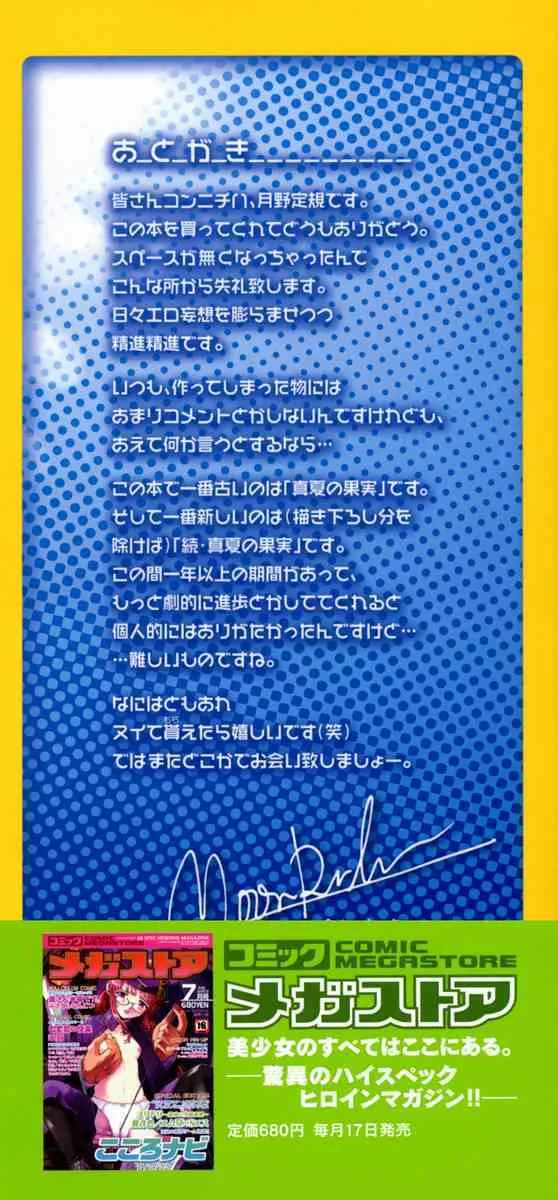 お_と_が_き_________
皆さんコンニチハ、月野定規です。
この本を買ってくれてどうもありがとう。
スペースが無くなっちゃったんで
こんな所から失礼致します。
日々エロ妄想を膨らませつつ
精進精進です。
いつも、作ってしまった物には
あまりコメントとかしないんですけれども、
あえて何か言うとするなら…
この本で一番古いのは「真夏の果実」です。
そして一番新しいのは(描き下ろし分を
除けば)「続・真夏の果実」です。
この間一年以上の期間があって、
もっと劇的に進歩とかしててくれると
個人的にはありがたかったんですけど…
…難しいものですね。
なにはともあれ
ヌイて貰えたら嬉しいです(笑)
もら
ではまたどこかでお会い致しましょー。
コミック
メガストア
7
月号
680YEN
18
こころナビ
コミック COMIC
MEGASTORE
メガストア
美少女のすべてはここにある。
―驚異のハイスペック
ヒロインマガジン!!―
定価680円 毎月17日発売